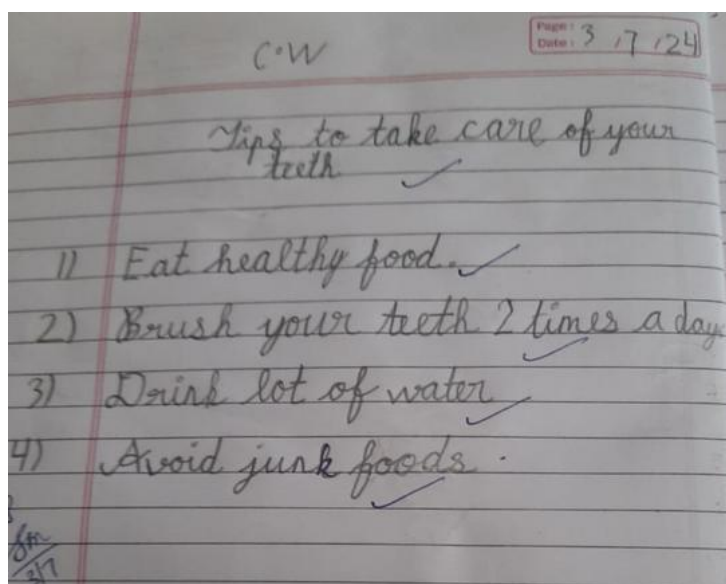 Page: 3
Date: /7/24
C.W
Tips to take care of your
teeth
1) Eat healthy food.
2) Brush your teeth 2 times a day
3) Drink lot of water
4) Avoid junk foods.
3/7